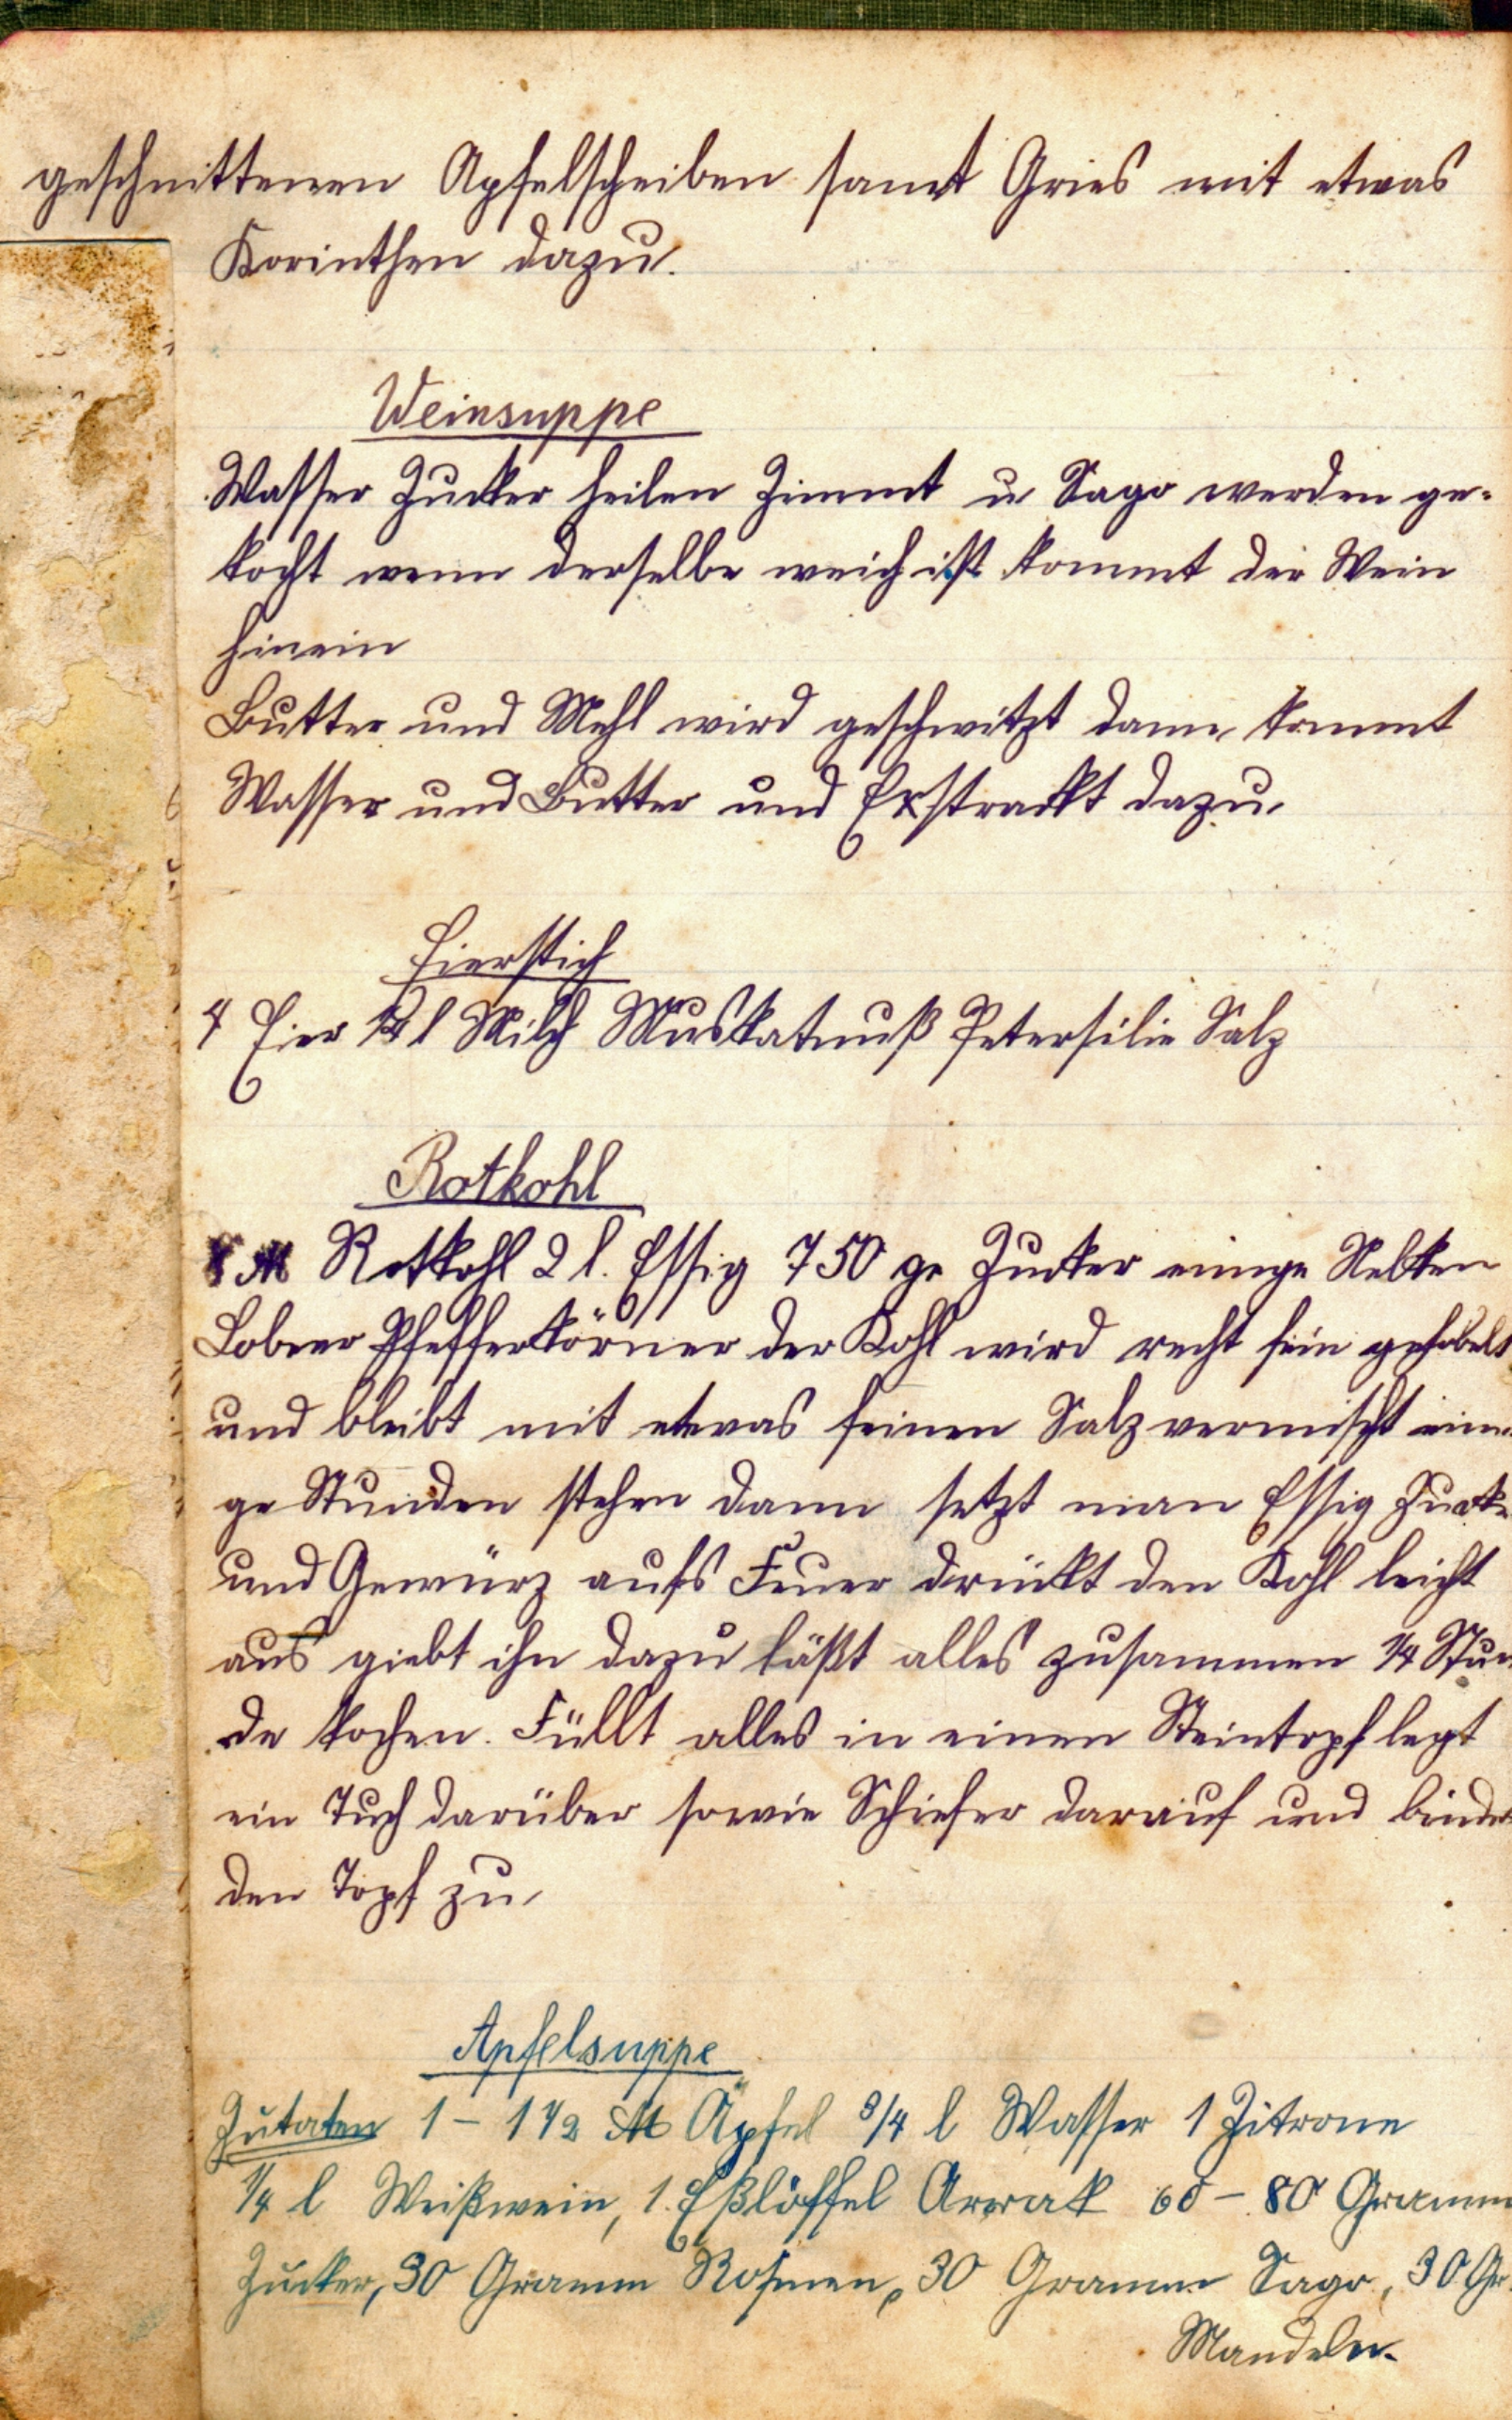 geschnittenen Apfelscheiben samt Gries mit etwas
Korinthen dazu.
Weinsuppe
Wasser Zucker heilen Zimmt u Sago werden ge-
kocht wenn derselbe weich ist kommt der Wein
hinein
Butter und Mehl wird geschwitzt dann kommt
Wasser und Butter und Exstrackt dazu.
Eierstich
4 Eier l Milch Muskatnuß Petersilie Salz
Rotkohl
℔ Rotkohl 2 l. Essig 750 gr Zucker einige Nelken
Pfefferkörner der Kohl wird recht fein gehobelt
und bleibt mit etwas feinen Salz vermischt eini
ge Stunden stehen dann setzt man Essig Zucke
und Gewürz aufs Feuer drückt den Kohl leicht
aus giebt ihn dazu läßt alles zusammen 1/4 Stun
de kochen. Füllt alles in einen Steintopf legt
ein Tuch darüber sowie Schiefer darauf und binde
den Topf zu.
Apfelsuppe
Zutaten 1 - 1 1/2 ℔ Äpfel 3/4 l Wasser 1 Zitrone
1/4 l Weißwein, 1. Eßlöffel Arrak 60 - 80 Gramm
Zucker, 30 Gramm Rosinen, 30 Gramm Sago, 30 Gr.
Mandeln.